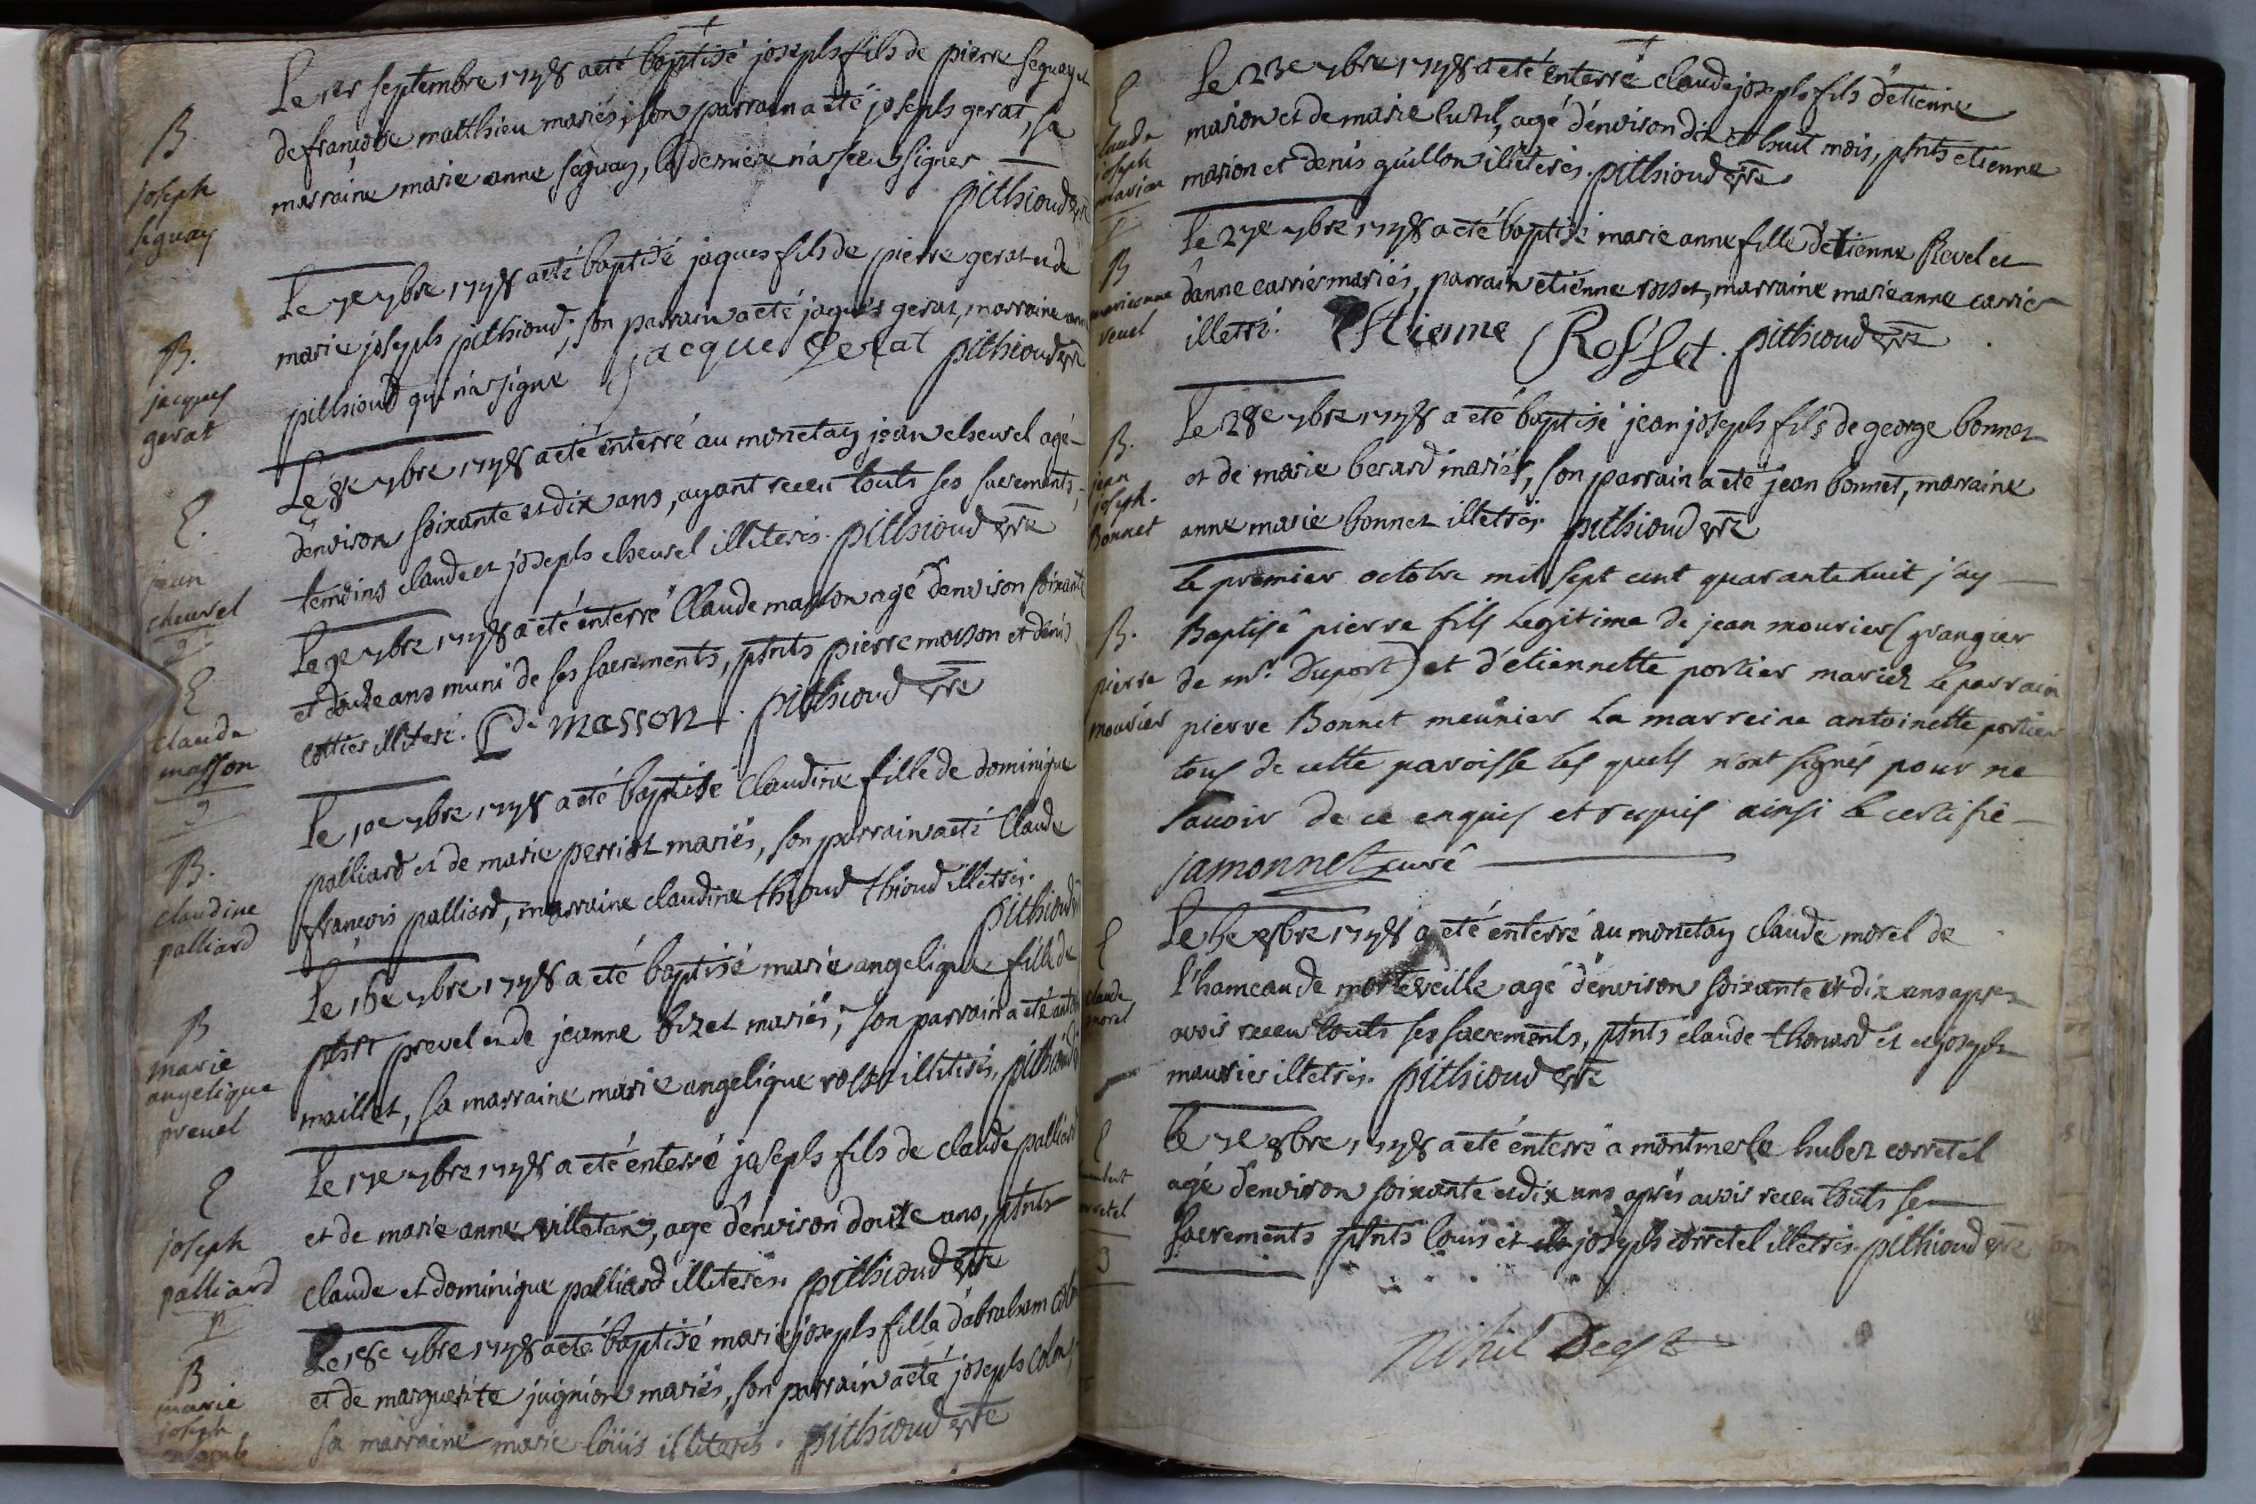 Le 1er septembre 1748 a eté baptisé joseph fils de pierre seguay et
B
joseph
seguay
de françoise matthieu mariés, son parrain a eté joseph gerat, sa
marraine marie anne seguay, la derniere n'a seu signer
pithioud vre
B.
jacques
gerat
Le 7e 7bre 1748 a eté baptisé jaques fils de pierre gerat et de
marie joseph pithioud, son parrain a eté jaques gerat, marraine
pithioud qui n'a signé jacque Gerat pithioud vre
E.
jean
cheurel
2
Le 8e 7bre 1748 a eté enterré au monetay jean cheurel agé
d'environ soixante et dix ans, ayant receu touts ses sacrements,
temoins claude et joseph cheurel illiterés. pithioud vre
E
claude
masson
3
Le 9e 7bre 1748 a eté enterré Claude masson agé d'environ soixante
et douze ans muni de ses sacrements, ptnts pierre masson et denis
cottier illiteré. Cde masson. pithioud vre
B.
claudine
palliard
Le 10e 7bre 1748 a eté baptisé Claudine fille de dominique
palliard et de marie perriot mariés, son parrain a eté Claude
françois palliard, marraine claudine thioud thioud illetrés.
pithioud
B
marie
angelique
preuel
Le 16e 7bre 1748 a eté baptisé marie angelique fille de
prevel et de jeanne bizet mariés, son parrain a eté
maillet, sa marraine marie angelique rosset illiterés, pithioud
E
joseph
palliard
Le 17e 7bre 1748 a eté enterré joseph fils de claude palliard
et de marie anne villetan, agé d'environ douze ans, ptnts
claude et dominique palliard illiterés. pithioud vre
B
marie
joseph
Le 18e 7bre 1748 a eté baptisé marie joseph fille d'abraham
et de marguerite juignion mariés, son parrain a eté joseph
sa marraine marie loüis illiterés. pithioud vre
E
claude
joseph
marion
Le 23e 7bre 1748 a eté enterré claude joseph fils d'etienne
marion et de marie lutil, agé d'environ dix et huit mois, ptnts etienne
marion et denis guillon illiterés. pithioud vre
B
marieanne
reuel
Le 27e 7bre 1748 a eté baptisé marie anne fille d'etienne Revel et
d'anne carrier mariés, parrain etienne rosset, marraine marie anne carrier
illetré. Estienne Rosset. pithioud vre
B.
jean
joseph.
Bonnet
Le 28e 7bre 1748 a eté baptisé jean joseph fils de george bonnet
et de marie berard mariés, son parrain a eté jean bonnet, marraine
anne marie bonnet illetrés. pithioud vre
B.
pierre
mourier
Le premier octobre mil sept cent quarante huit j'ay
Baptisé pierre fils legitime de jean mourier (grangier
de mr. Duport) et d'etiennette portier mariez le parrain
pierre Bonnet meunier La marreine antoinette portier
tous de cette paroisse les quels n'ont signés pour ne
sauoir de ce enquis et requis ainsi le certifié
jamonnet curé
E
claude
morel
Le 5e 8bre 1748 a eté enterré au monetay claude morel de
l'hameau de morteveille agé d'environ soixante et dix ans apprez
avoir receu touts ses sacrements, ptnts claude thonard et et joseph
maurier illetrés. pithioud vre
E
3
Le 7e 8bre 1748 a eté enterré a montmerle hubert corretel
agé d'environ soixante et dix ans aprés avoir receu touts se
sacrements ptnts louis et joseph corretel illetrés. pithioud vre
Nihil Deest